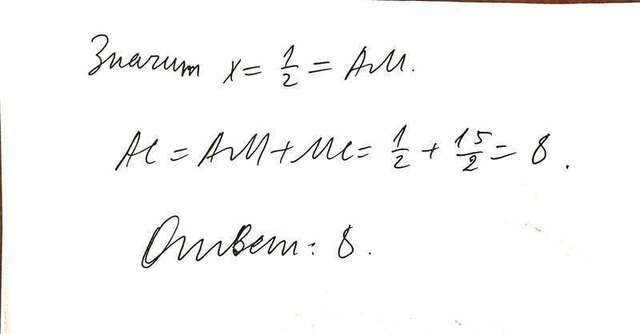 Значит x = 1/2 = AM.
AC = AM + MC = 1/2 + 15/2 = 8.
Ответ: 8.